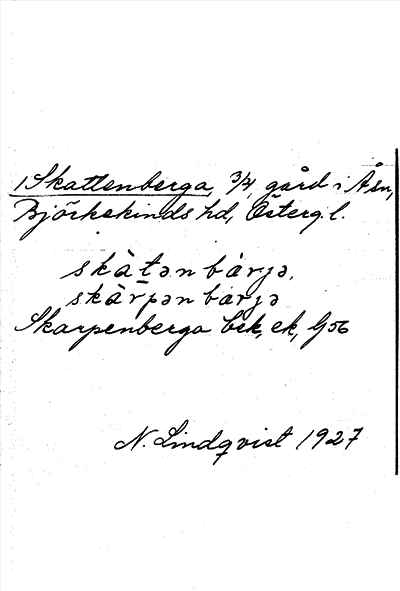 1 Skattenberga, 3/4, gård i Å sn,
Björkekinds hd, Östergl.
skàtən bárjə,
skàrpən bárjə
Skarpenberga bek, ek, G56
N. Lindqvist 1927